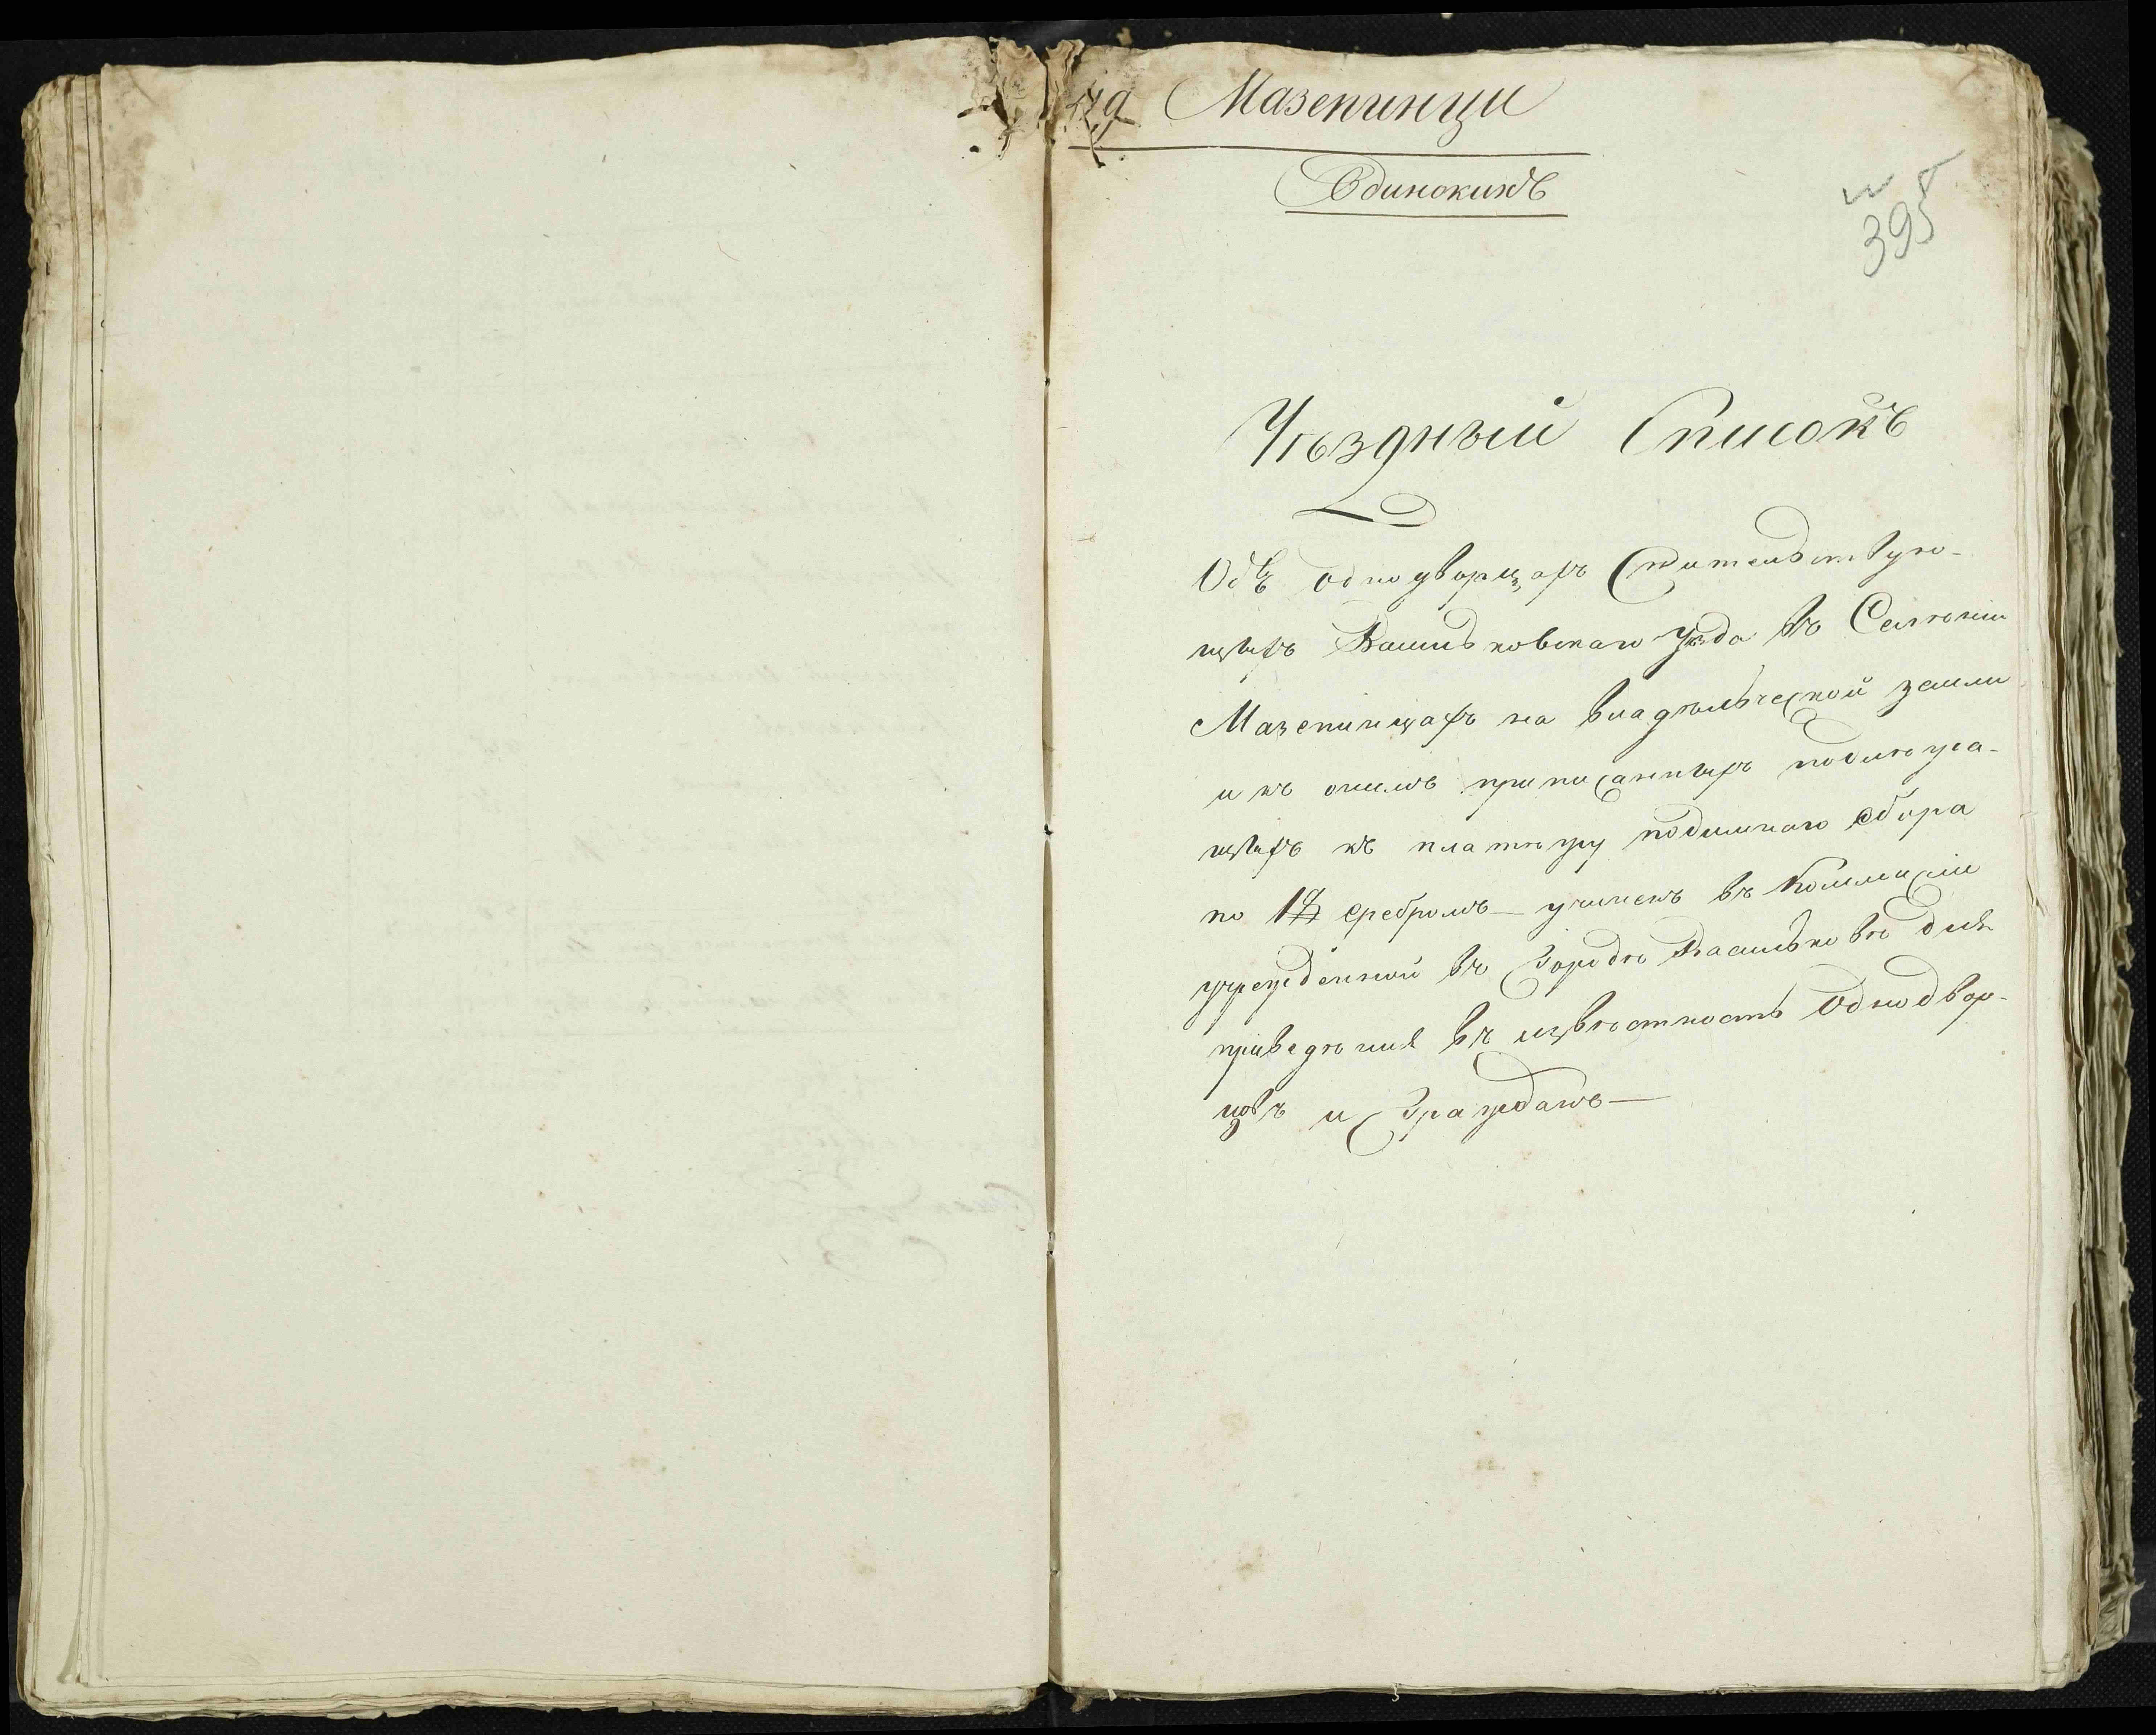 179 Мазепинци
Одинокихъ
395
Уѣздный Списокъ
Объ однодворцахъ жительствую-
щихъ Васильковскаго Уѣзда въ Селеніи
Мазепинцахъ на владѣльческой земли
и къ онымъ приписанныхъ подлежа-
щихъ къ платежу подымнаго сбора
по 1 р серебромъ — учиненъ въ Коммисіи
учрежденной въ Городѣ Васильковѣ для
приведѣнія въ извѣстность Однодвор-
цовъ и Гражданъ —